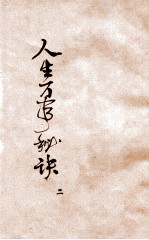 人生万事秘訣
二